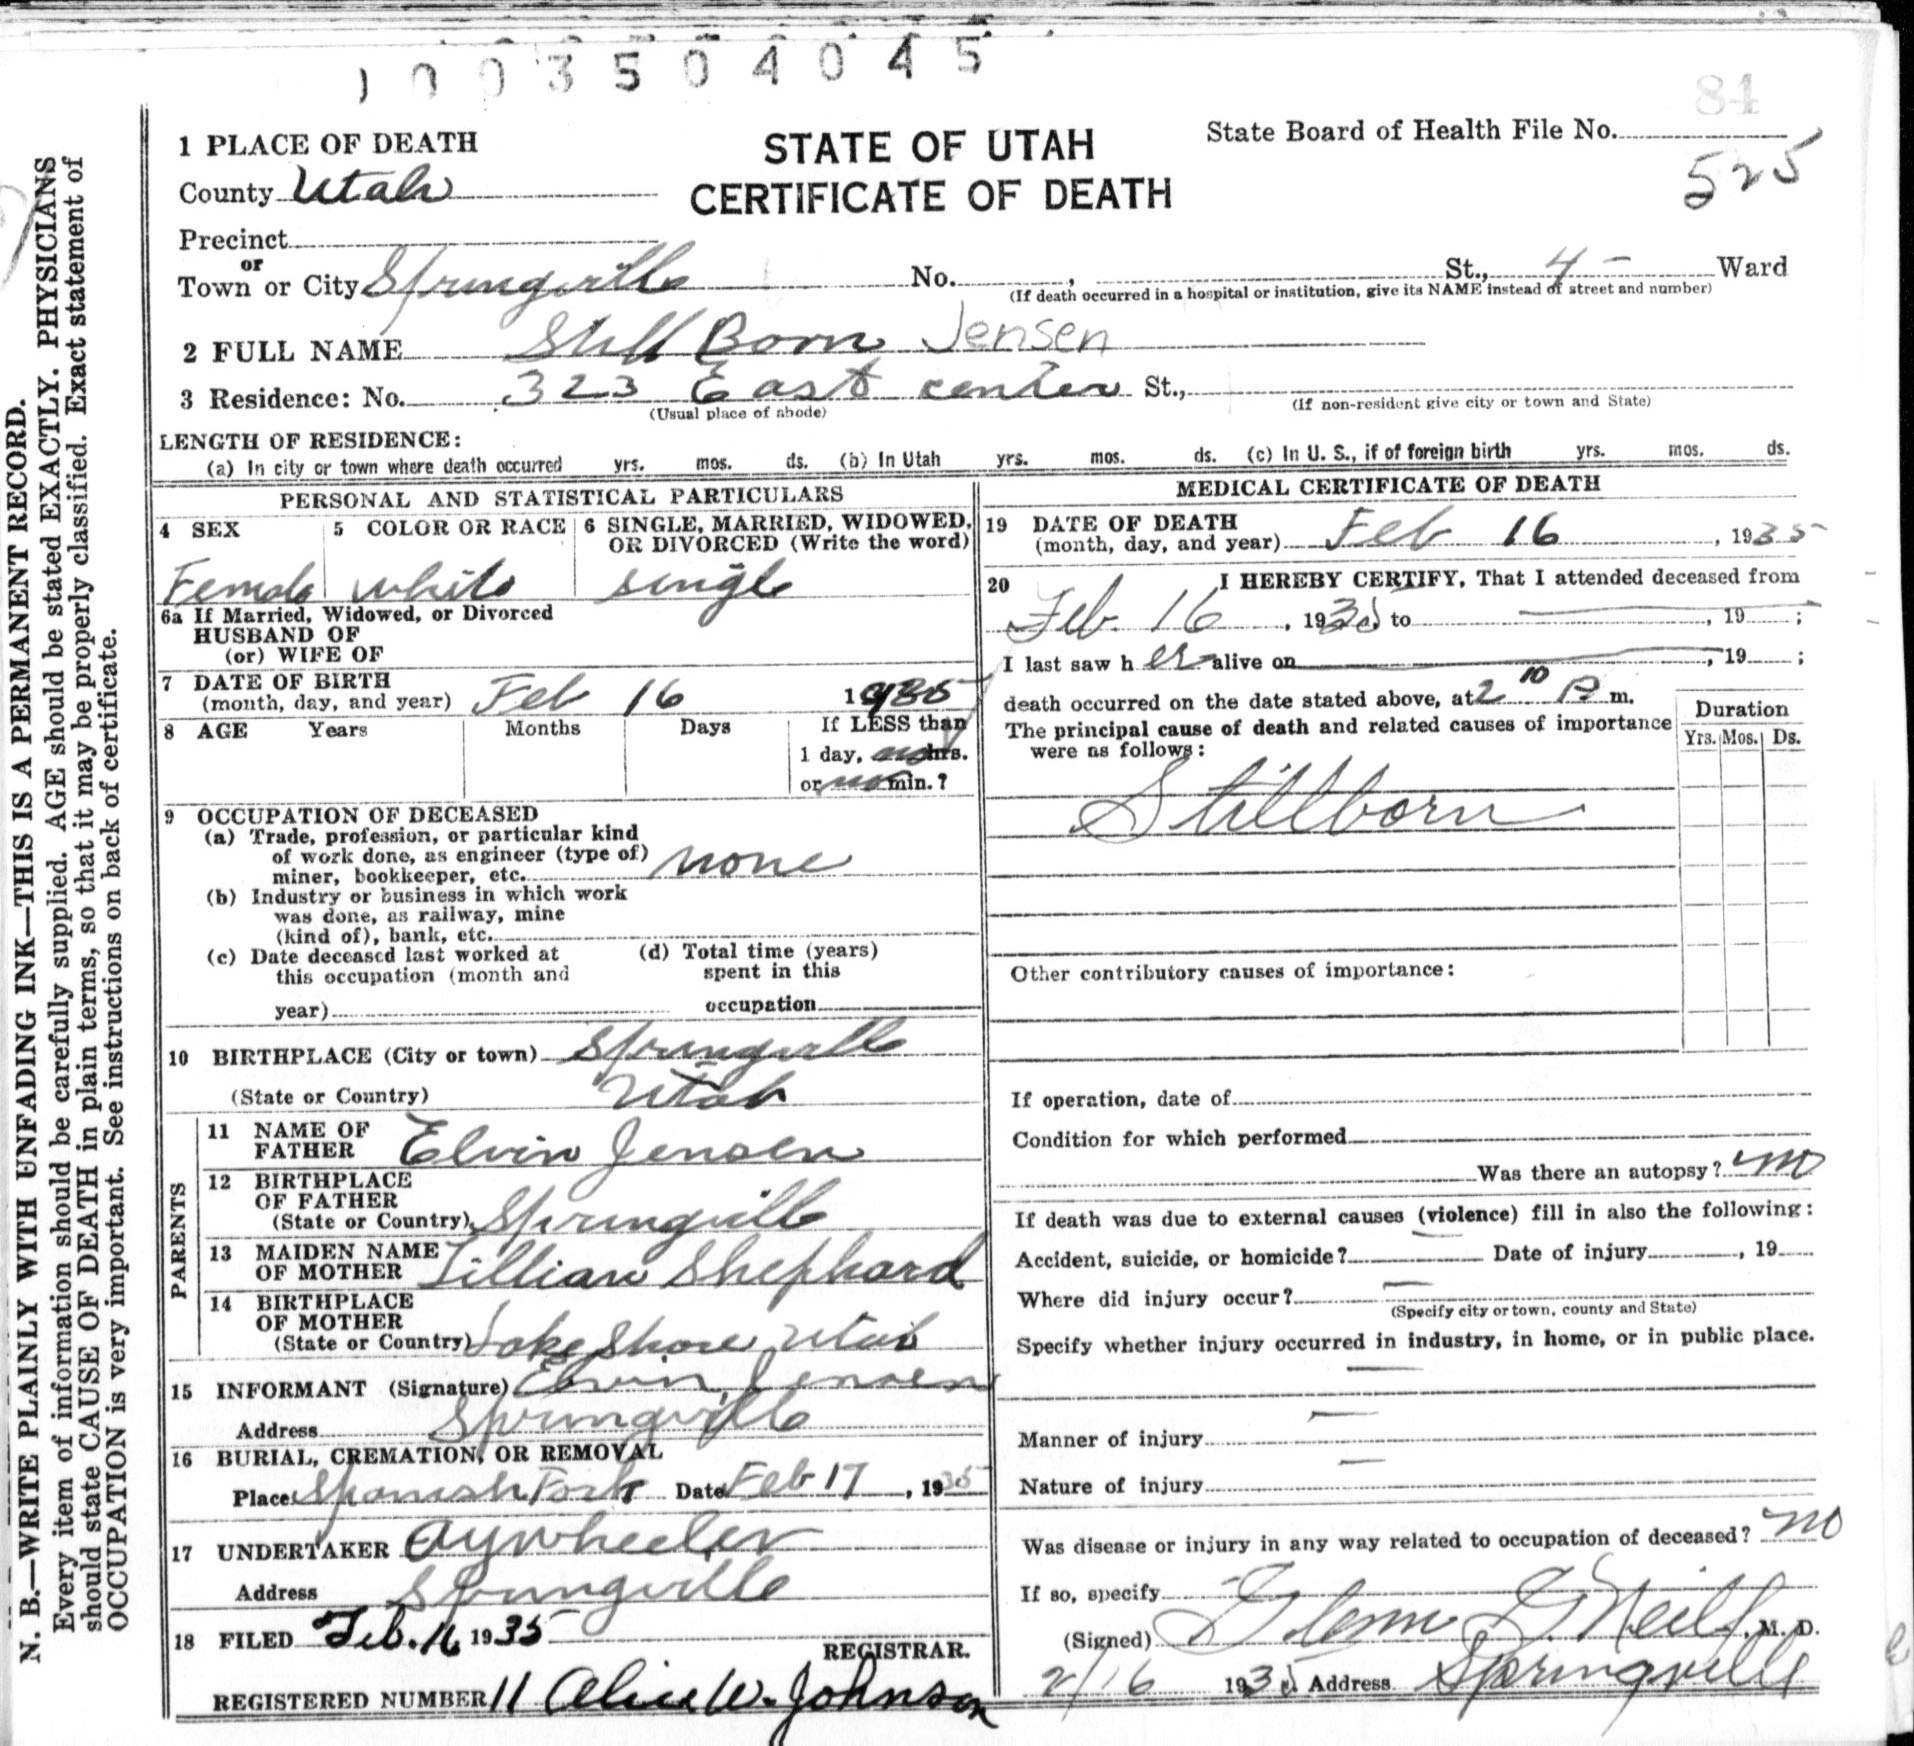 1003504045
84
1 PLACE OF DEATH
STATE OF UTAH
State Board of Health File No.
525
County Utah
CERTIFICATE OF DEATH
Precinct
or
Town or City Springville No. , St., 4 - Ward
(If death occurred in a hospital or institution, give its NAME instead of street and number)
2 FULL NAME Still Born Jensen
3 Residence: No. 323 East center St.,
(Usual place of abode) (If non-resident give city or town and State)
LENGTH OF RESIDENCE:
(a) In city or town where death occurred yrs. mos. ds. (b) In Utah yrs. mos. ds. (c) In U. S., if of foreign birth yrs. mos. ds.
PERSONAL AND STATISTICAL PARTICULARS
4 SEX 5 COLOR OR RACE 6 SINGLE, MARRIED, WIDOWED,
OR DIVORCED (Write the word)
Female white single
6a If Married, Widowed, or Divorced
HUSBAND OF
(or) WIFE OF
7 DATE OF BIRTH
(month, day, and year) Feb 16 1935
8 AGE Years Months Days If LESS than
1 day, no hrs.
or no min.?
9 OCCUPATION OF DECEASED
(a) Trade, profession, or particular kind
of work done, as engineer (type of)
miner, bookkeeper, etc. none
(b) Industry or business in which work
was done, as railway, mine
(kind of), bank, etc.
(c) Date deceased last worked at (d) Total time (years)
this occupation (month and spent in this
year) occupation
10 BIRTHPLACE (City or town) Springville
(State or Country) Utah
PARENTS
11 NAME OF
FATHER Elvin Jensen
12 BIRTHPLACE
OF FATHER
(State or Country) Springville
13 MAIDEN NAME
OF MOTHER Lillian Shephard
14 BIRTHPLACE
OF MOTHER
(State or Country) Lake Shore Utah
15 INFORMANT (Signature) Elvin Jensen
Address Springville
16 BURIAL, CREMATION, OR REMOVAL
Place Spanish Fork Date Feb 17, 1935
17 UNDERTAKER A Y Wheeler
Address Springville
18 FILED Feb. 16 1935
REGISTRAR.
REGISTERED NUMBER 11 Alice W. Johnson
MEDICAL CERTIFICATE OF DEATH
19 DATE OF DEATH
(month, day, and year) Feb 16, 1935
20 I HEREBY CERTIFY, That I attended deceased from
Feb 16, 1935 to , 19 ;
I last saw h er alive on , 19 ;
death occurred on the date stated above, at 2 10 P. m.
The principal cause of death and related causes of importance
were as follows:
Duration
Yrs. Mos. Ds.
Stillborn
Other contributory causes of importance:
If operation, date of
Condition for which performed
Was there an autopsy? no
If death was due to external causes (violence) fill in also the following:
Accident, suicide, or homicide? Date of injury , 19
Where did injury occur?
(Specify city or town, county and State)
Specify whether injury occurred in industry, in home, or in public place.
Manner of injury
Nature of injury
Was disease or injury in any way related to occupation of deceased? no
If so, specify
(Signed) Glenn J. Neill, M. D.
2/16 1935 Address Springville
N. B.—WRITE PLAINLY WITH UNFADING INK—THIS IS A PERMANENT RECORD.
Every item of information should be carefully supplied. AGE should be stated EXACTLY. PHYSICIANS
should state CAUSE OF DEATH in plain terms, so that it may be properly classified. Exact statement of
OCCUPATION is very important. See instructions on back of certificate.